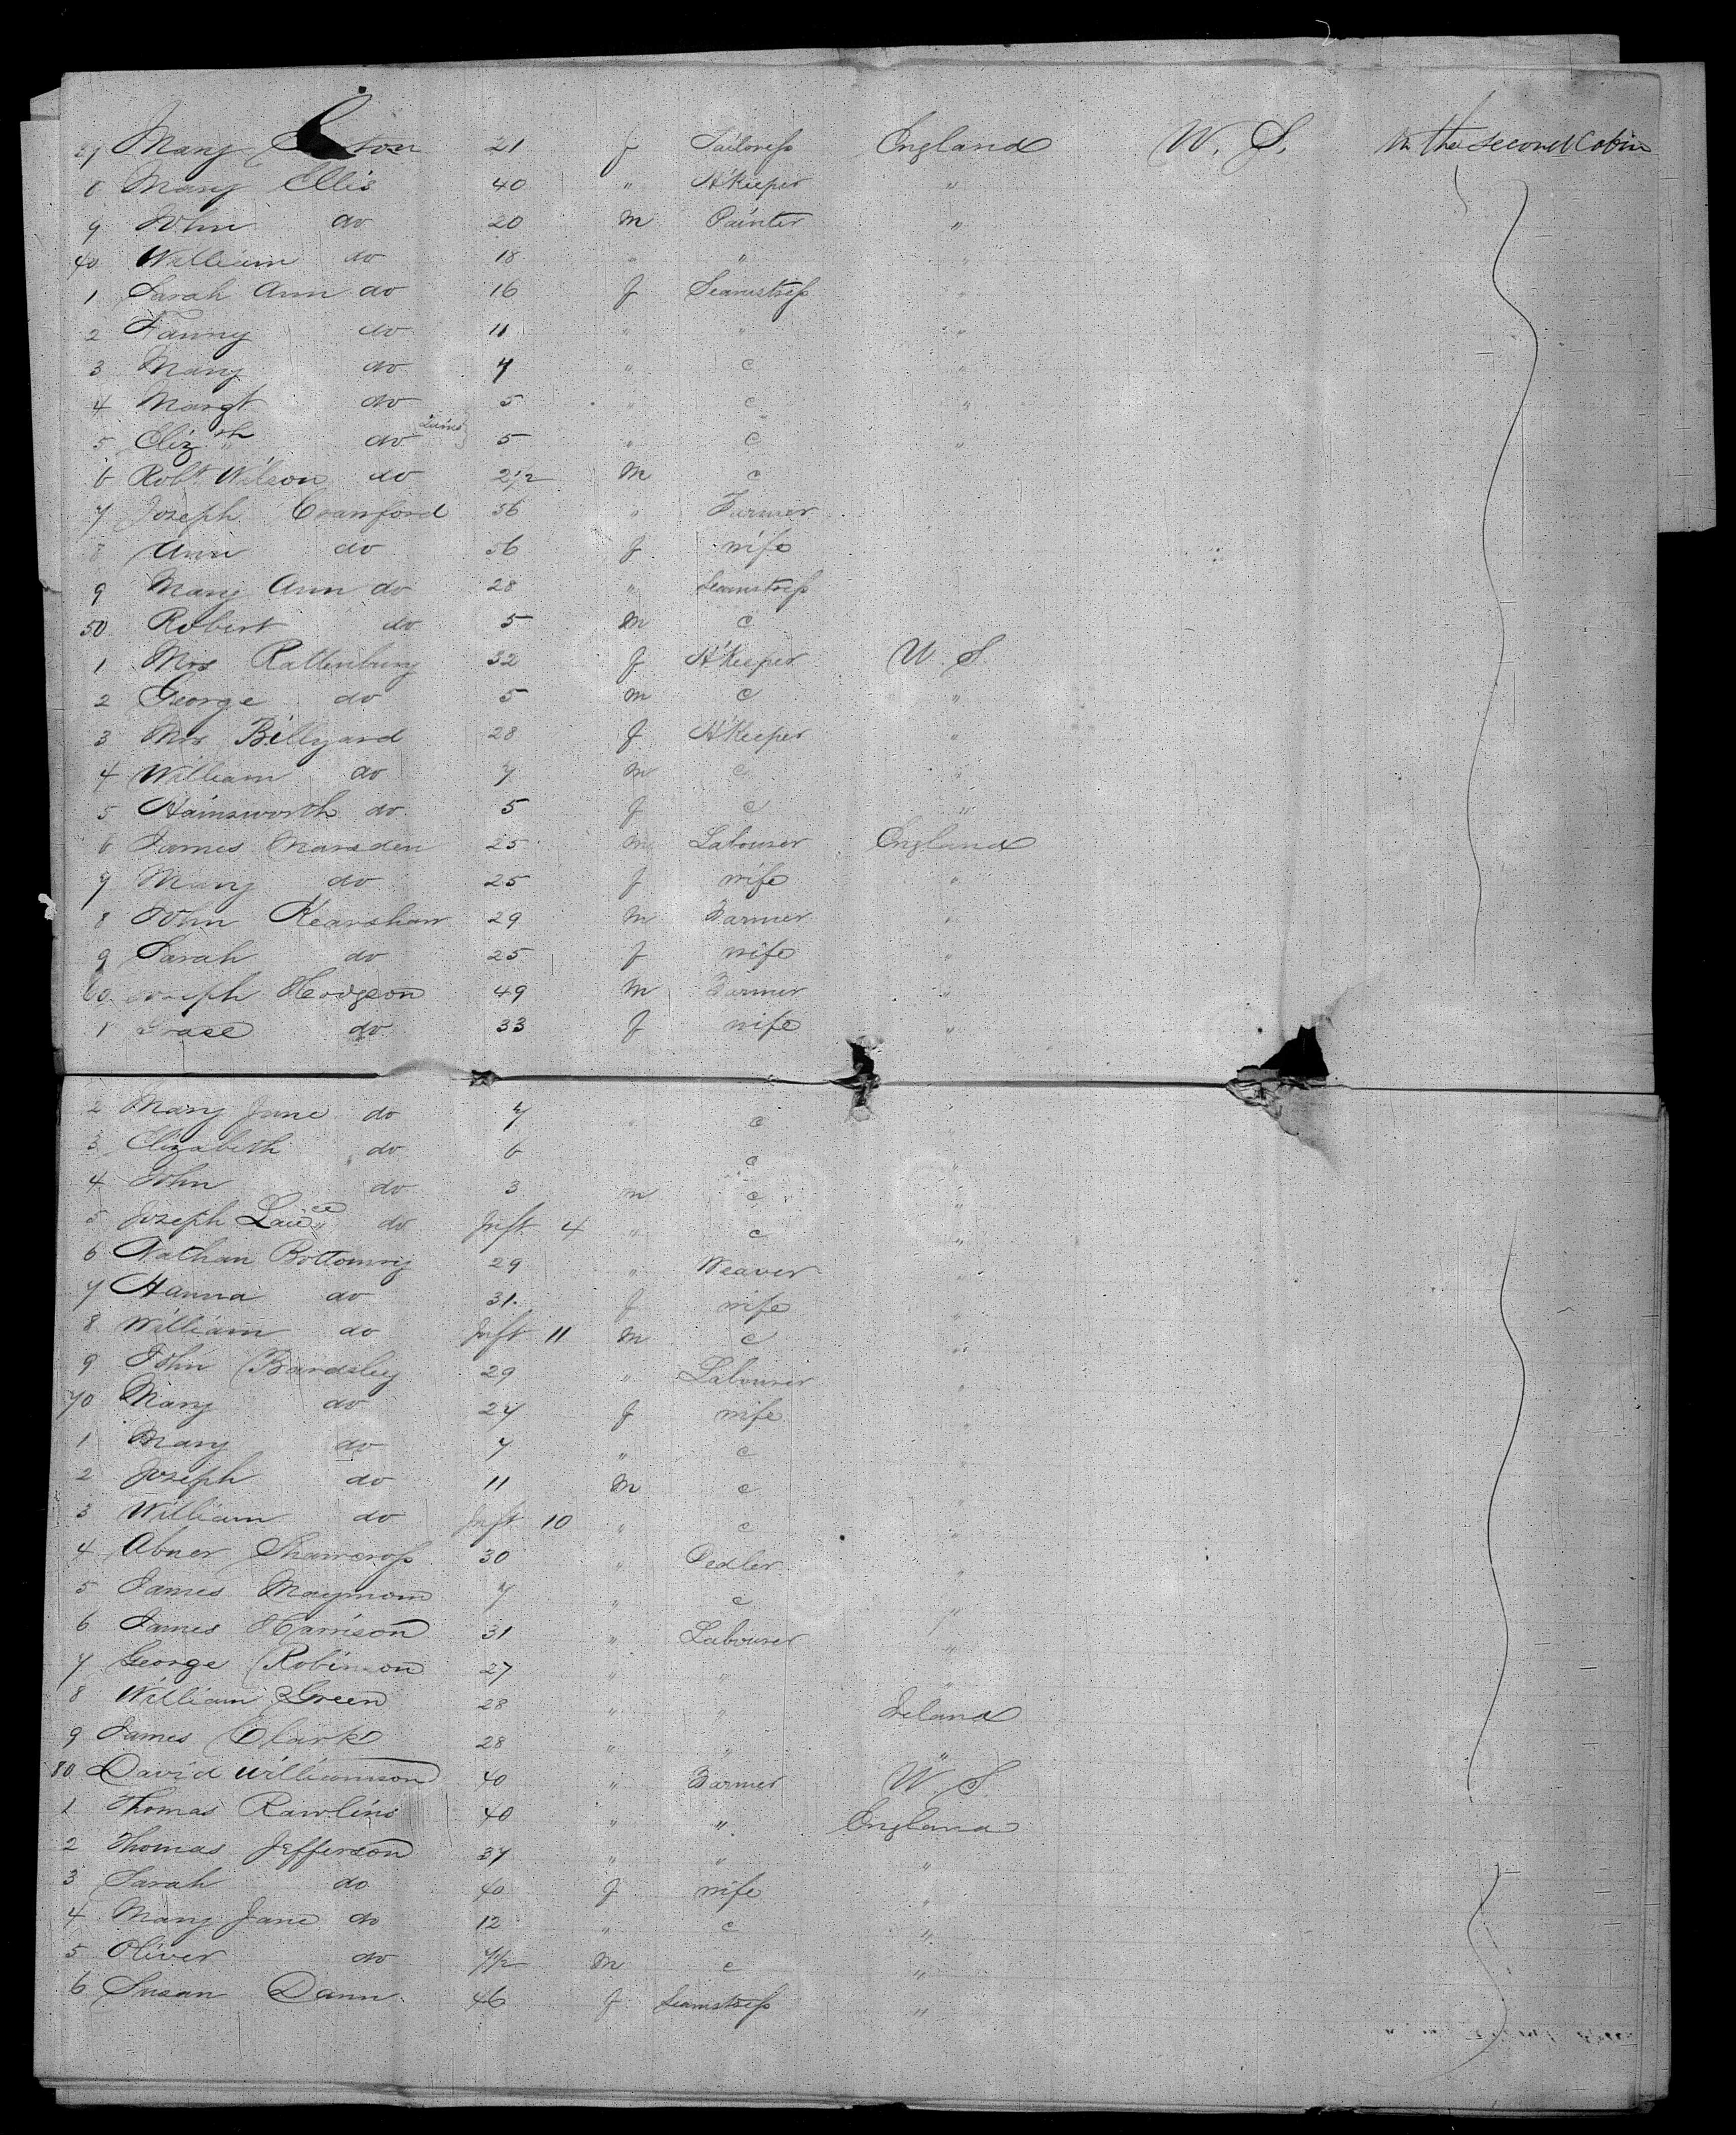 Mary 21 f Tailoress England U. S. In the second Cabin
8 Mary Ellis 40 " H'Keeper "
9 John do 20 m Painter "
40 William do 18 " " "
1 Sarah Ann do 16 f Seamstress "
2 Fanny do 11 " " "
3 Mary do 7 " c "
4 Margt do 5 " c "
5 Elizth do Twins 5 " c "
6 Robt Wilson do 2 1/2 m c
7 Joseph Cranford 56 " Farmer
8 Ann do 56 f wife
9 Mary Ann do 28 " Seamstress
50 Robert do 5 m c
1 Mrs Rattenbury 32 f H'Keeper U. S.
2 George do 5 m c "
3 Mrs Billyard 28 f H'Keeper "
4 William do 7 m c "
5 Hainsworth do 5 f c "
6 James Marsden 25 m Labourer England
7 Mary do 25 f wife "
8 John Kearshaw 29 m Farmer "
9 Sarah do 25 f wife "
60 Joseph Hodgson 49 m Farmer "
1 Grace do 33 f wife "
2 Mary Jane do 7 " c "
3 Elizabeth do 6 c "
4 John do 3 m c "
5 Joseph do Inft 4 " c "
6 Nathan Bottomly 29 " Weaver "
7 Hanna do 31. f wife "
8 William do Inft 11 m c "
9 John Bardsley 29 " Labourer "
70 Mary do 27 f wife "
1 Mary do 7 " c "
2 Joseph do 11 m c "
3 William do Inft 10 " c "
4 Abner Shawcross 30 " Pedler "
5 James Maymom 7 " c "
6 James Harrison 31 " Labourer "
7 George Robinson 27 " " "
8 William Green 28 " " Ireland
9 James Clark 28 " " "
80 David Williamson 40 " Farmer U. S.
1 Thomas Rawlins 40 " " England
2 Thomas Jefferson 37 " " "
3 Sarah do 40 f wife "
4 Mary Jane do 12 " c "
5 Oliver do 7 1/2 m c "
6 Susan Dann 46 f Seamstress "